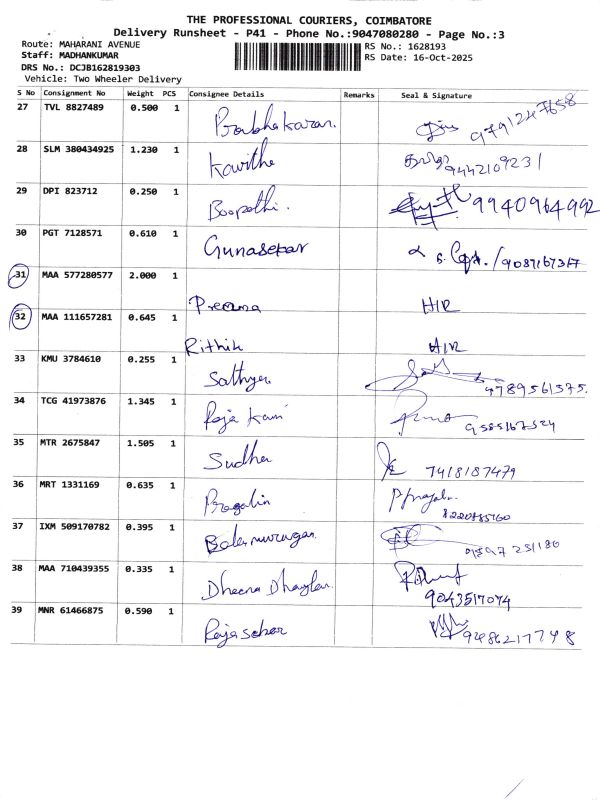 THE PROFESSIONAL COURIERS, COIMBATORE
Delivery Runsheet - P41 - Phone No.:9047080280 - Page No.:3
Route: MAHARANI AVENUE
Staff: MADHANKUMAR
DRS No.: DCJB162819303
Vehicle: Two Wheeler Delivery
RS No.: 1628193
RS Date: 16-Oct-2025
S No Consignment No Weight PCS Consignee Details Remarks Seal & Signature
27 TVL 8827489 0.500 1 Prabhakaran. 9791247658
28 SLM 380434925 1.230 1 Kavitha 9442109231
29 DPI 823712 0.250 1 Boopathi. 9940964992
30 PGT 7128571 0.610 1 Gunasekar
31 MAA 577280577 2.000 1 Prerna H/R
32 MAA 111657281 0.645 1 Rithik H/R
33 KMU 3784610 0.255 1 Sathya 9789561575.
34 TCG 41973876 1.345 1 Raja Kani
35 MTR 2675847 1.505 1 Sudha 7418187479
36 MRT 1331169 0.635 1 Pragalin
37 IXM 509170782 0.395 1 Balamurugan
38 MAA 710439355 0.335 1 Dheena Dhayalan 9043517074
39 MNR 61466875 0.590 1 Rajasekar 9486217748